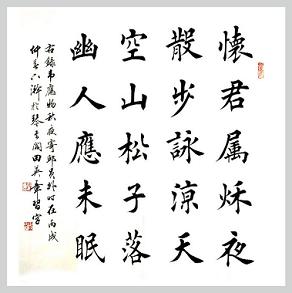 懷君属秋夜
散步詠涼天
空山松子落
幽人應未眠
右錄韋應物秋夜寄邱員外時在丙戌
仲春於琴書閣田英章習字